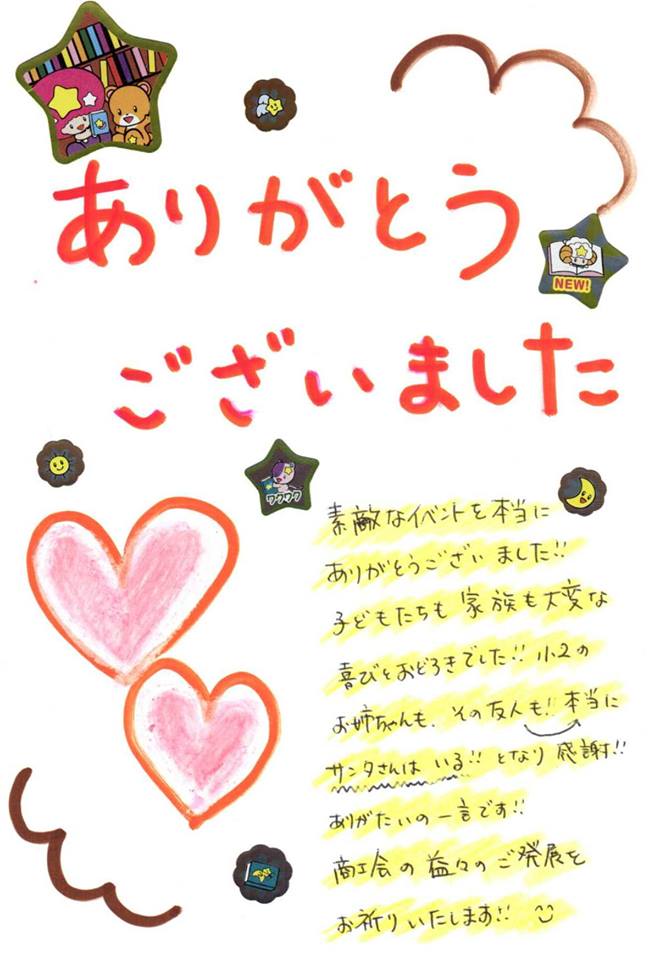 ありがとう
NEW!
ございました
ワクワク
素敵なイベントを本当に
ありがとうございました!!
子どもたちも家族も大変な
喜びとおどろきでした!! 小2の
お姉ちゃんも、その友人も!! 本当に
サンタさんは いる!! となり 感謝!!
ありがたいの一言です!!
商工会の益々のご発展を
お祈りいたします!!